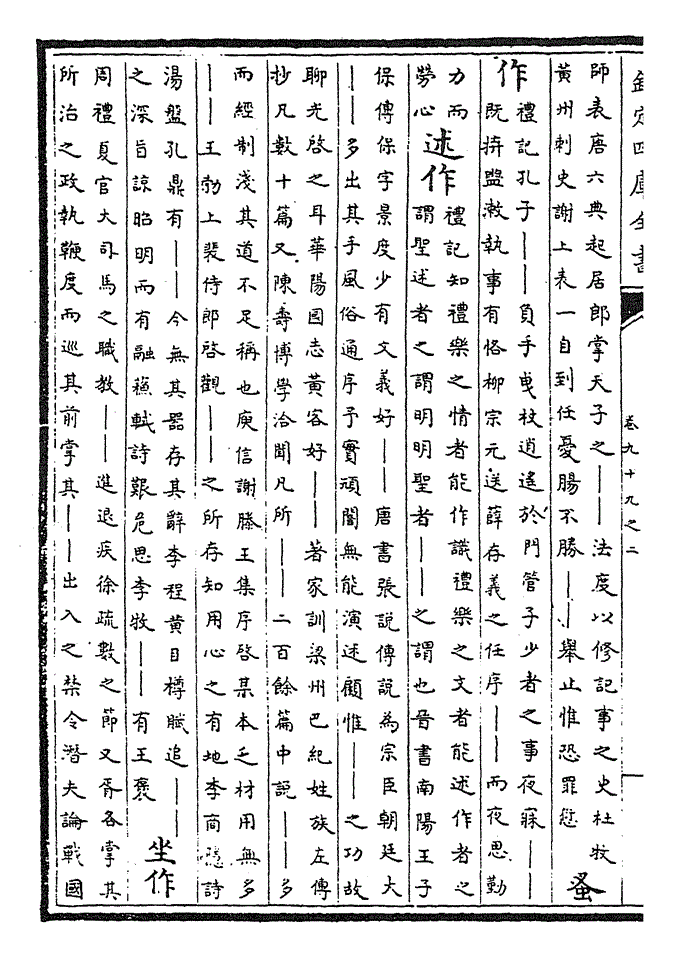 欽定四庫全書
卷九十九之二
師表唐六典起居郎掌天子之——法度以修記事之史杜牧
黃州刺史謝上表一自到任憂腸不勝——舉止惟恐罪愆
蚤
作
禮記孔子——負手曳杖逍遙於門管子少者之事夜寐——
既拚盥漱執事有恪柳宗元送薛存義之任序——而夜思勤
力而
勞心
述作
禮記知禮樂之情者能作識禮樂之文者能述作者之
謂聖述者之謂明明聖者——之謂也晉書南陽王子
保傳保字景度少有文義好——唐書張說傳說為宗臣朝廷大
——多出其手風俗通序予實頑闇無能演述顧惟——之功故
聊光啓之耳華陽國志黃容好——著家訓梁州巴紀姓族左傳
抄凡數十篇又陳壽博學洽聞凡所——二百餘篇中說——多
而經制淺其道不足稱也庾信謝滕王集序啓某本乏材用無多
——王勃上裴侍郎啓觀——之所存知用心之有地李商隱詩
湯盤孔鼎有——今無其器存其辭李程黃目樽賦追——
之深旨諒昭明而有融蘇軾詩艱危思李牧——有王褒
坐作
周禮夏官大司馬之職教——進退疾徐疏數之節又胥各掌其
所治之政執鞭度而巡其前掌其——出入之禁令潛夫論戰國